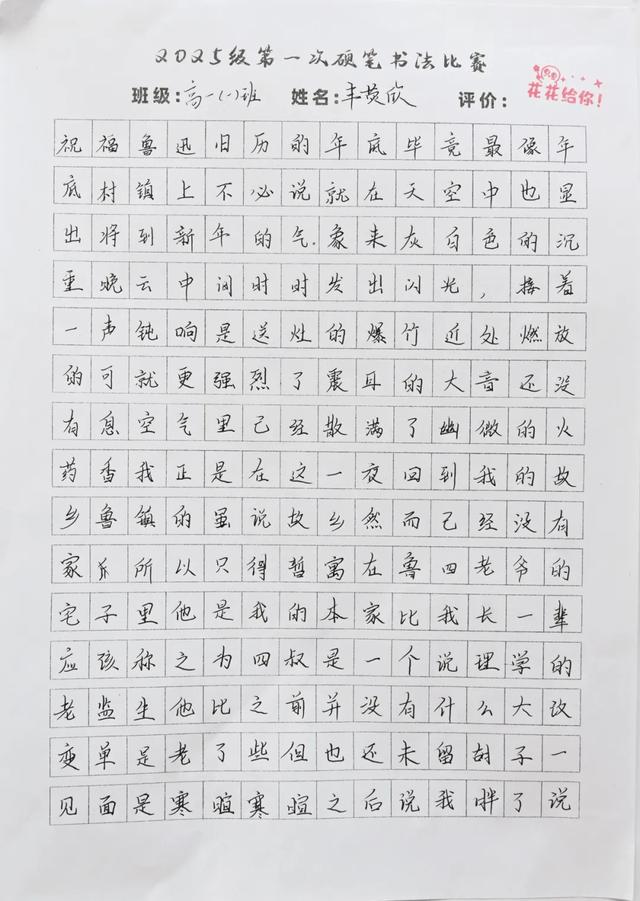 2025级第一次硬笔书法比赛
班级:高一(一)班 姓名:丰荧欣 评价: 花花给你!
祝福鲁迅旧历的年底毕竟最像年
底村镇上不必说就在天空中也显
出将到新年的气象来灰白色的沉
重晚云中间时时发出闪光，接着
一声钝响是送灶的爆竹近处燃放
的可就更强烈了震耳的大音还没
有息空气里已经散满了幽微的火
药香我正是在这一夜回到我的故
乡鲁镇的虽说故乡然而已经没有
家所以只得暂寓在鲁四老爷的
宅子里他是我的本家比我长一辈
应该称之为四叔是一个说理学的
老监生他比之前并没有什么大改
变单是老了些但也还未留胡子一
见面是寒暄寒暄之后说我胖了说